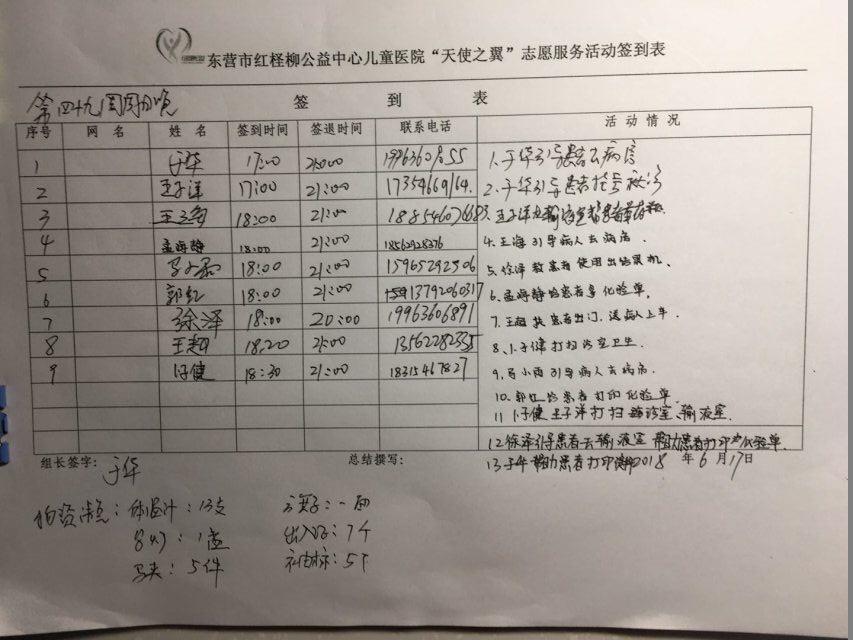 东营市红柽柳公益中心儿童医院“天使之翼”志愿服务活动签到表
第四十九周周日晚 签 到 表
序号 网 名 姓 名 签到时间 签退时间 联系电话 活 动 情 况
1 于华 17:00 21:00 1.于华引导患者去病房
2 王子洋 17:00 21:00 2.于华引导患者挂号
3 18:00 21:00
4 孟海静 18:00 21:00 18562928376 4.王海引导病人去病房.
5 18:00 21:00 15965292506 5.徐泽教患者使用出结果机、
6 郭红 18:00 21:00 13792060317 6.孟海静给患者拿化验单,
7 徐泽 18:00 20:00 19963606891 7.王超扶患者出门,送病人上车.
8 王超 18:20 21:00 13562282335 8.卜子健打扫诊室卫生.
9 卜子健 18:30 21:00 18315467827 9.马小雨引导病人去病房.
10.郭红给患者打印化验单.
11 卜子健 王子洋打扫 诊室、输液室.
12徐泽引导患者去输液室 帮助患者打印化验单.
组长签字: 于华 总结撰写: 13于华帮助患者打印 2018 年 6 月 17日
物资清点: 体温计: 13支 一面
1盒 出入证: 7个
马夹: 5件 5个